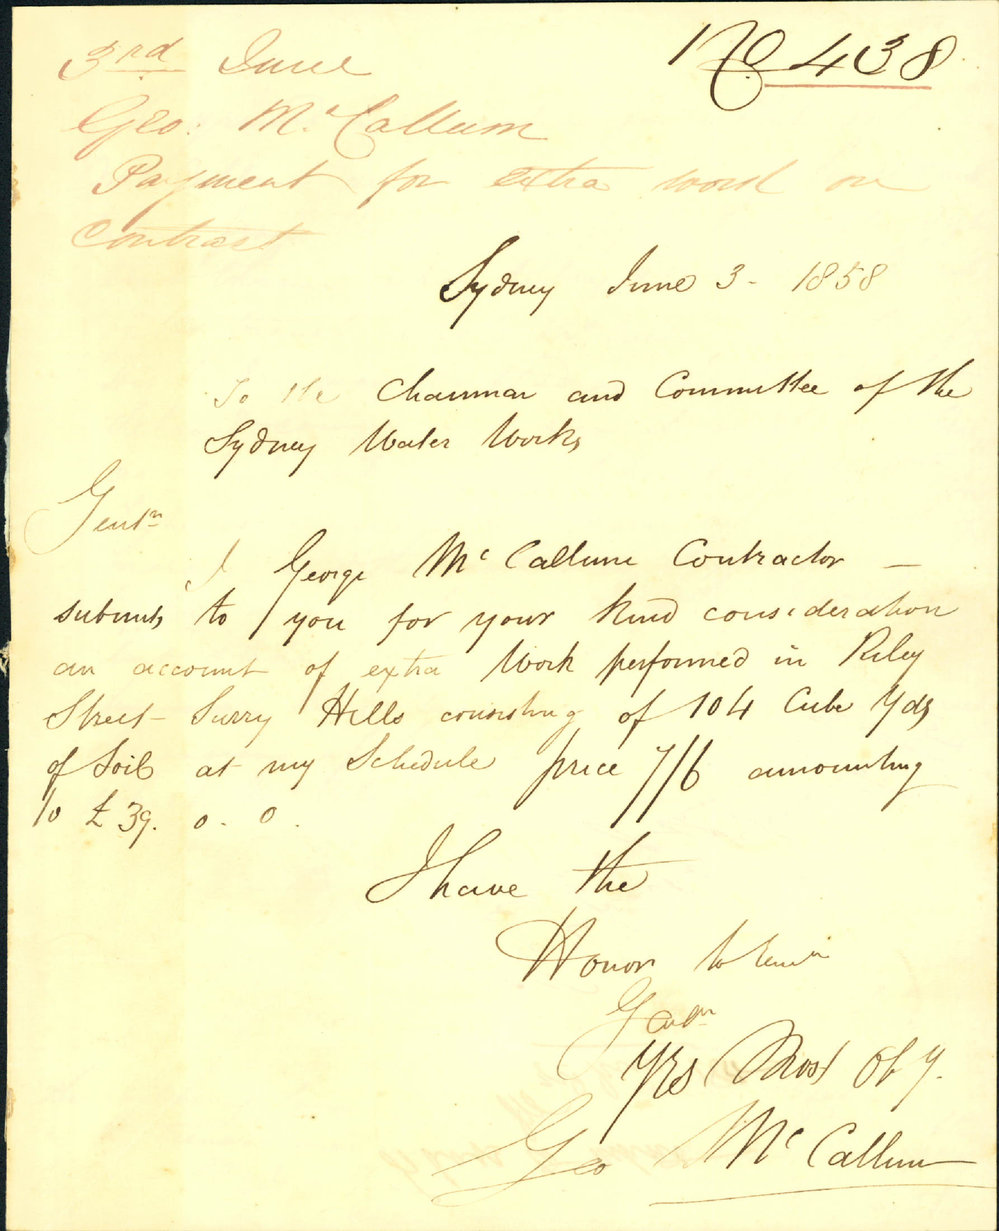 No 438
3rd June
Geo: McCallum
Payment for extra work on
Contract
Sydney June 3 - 1858
To the Chairman and Committee of the
Sydney Water Works
Gentn
I George McCallum Contractor —
submits to you for your kind consideration
an account of extra Work performed in Riley
Street - Surry Hills consisting of 104 Cube Yds
of Soil at my Schedule price 7/6 amounting
to £39. 0. 0.
I have the
Honor to
Gentn
Yrs Most Ob y.
Geo McCallum